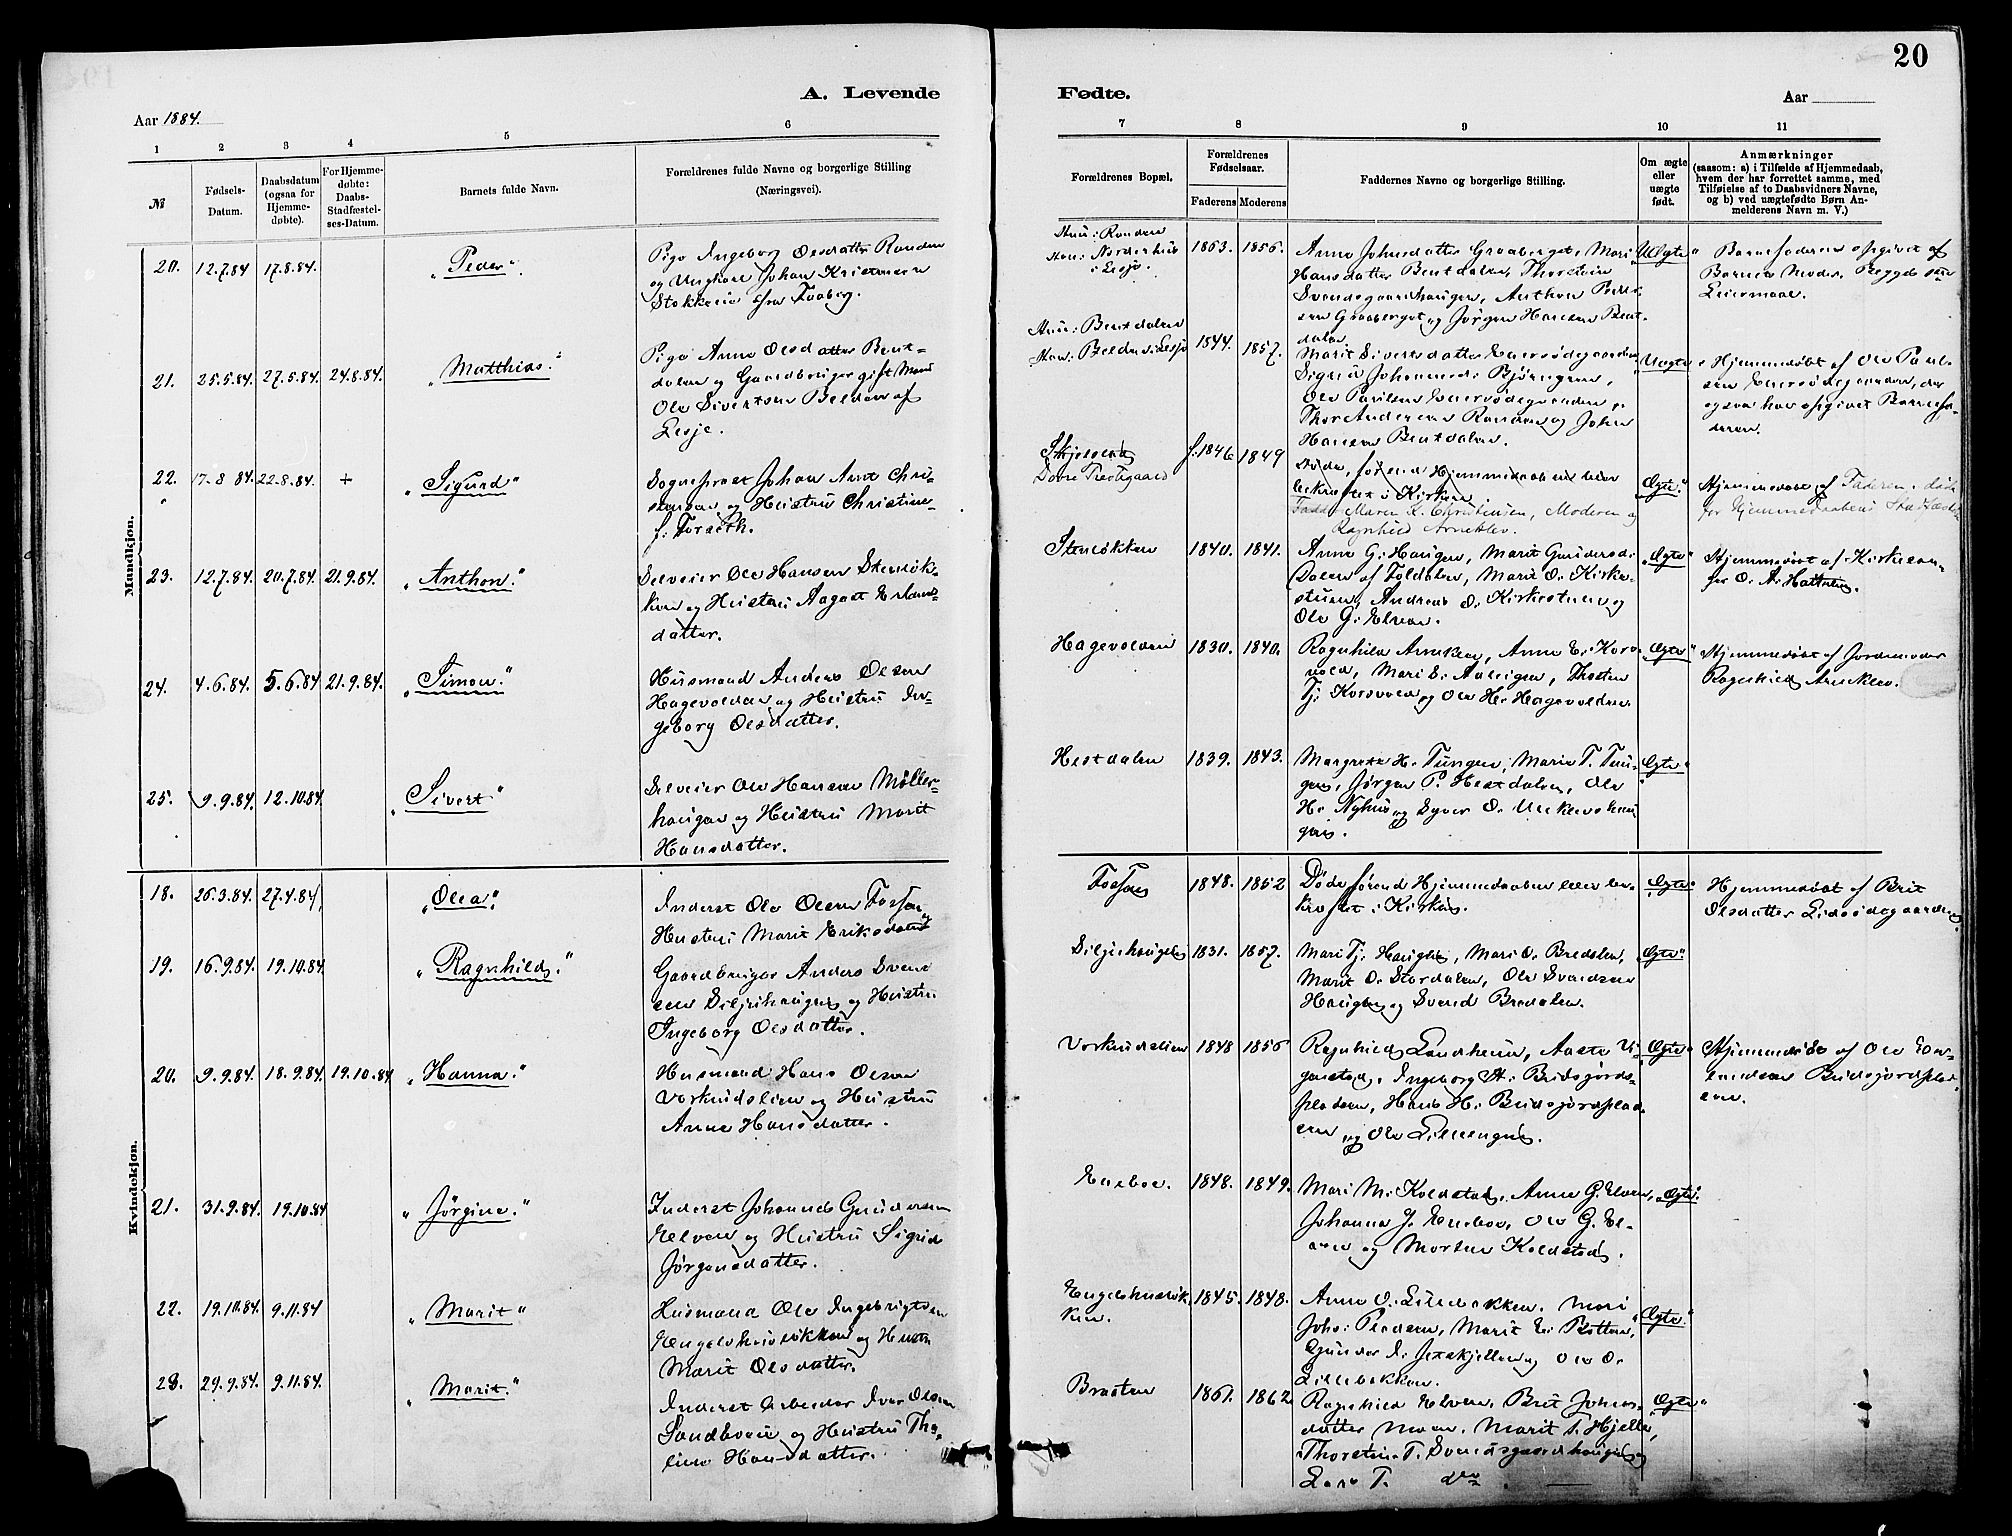 20
A. Levende
Fødte.
Aar 1884.
Aar
1
2
3
4
5
6
7
8
9
10
11
№
Fødsels-
Datum.
Daabsdatum
(ogsaa for
Hjemme-
døbte).
For Hjemme-
døbte:
Daabs-
Stadfæstel-
ses-Datum.
Barnets fulde Navn.
Forældrenes fulde Navne og borgerlige Stilling
(Næringsvei).
Forældrenes Bopæl.
Forældrenes
Fødselsaar.
Faderens
Moderens
Faddernes Navne og borgerlige Stilling.
Om ægte
eller
uægte
født.
Anmærkninger
(saasom: a) i Tilfælde af Hjemmedaab,
hvem der har forrettet samme, med
Tilføielse af to Daabsvidners Navne,
og b) ved uægtefødte Børn An-
melderens Navn m. V.)
Mandkjøn.
20. 12.7.84 17.8.84. "Peder".
Pige Ingeborg Olsdatter Randen
og Ungkarl Johan Kristiansen
Stokkeie fra Faaberg.
Hun: Randen
Han: Norderhus
i Lesje.
1863. 1856.
Anne Johnsdatter Graaberget, Mari
Hansdatter Bentdalen, Thorstein
Svendsgaardhaugen, Anthon Peder-
sen Graaberget og Jørgen Hansen Bent-
dalen.
"Uægte"
Barnefaderen opgivet af
Barnets Moder. Begges 1ste
Leiermaal.
21. 25.5.84. 27.5.84. 24.8.84. "Matthias."
Pige Anne Olsdatter Bent-
dalen og Gaardbruger gift Mand
Ole Sivertsen Belden af
Lesje.
Hun: Bentdalen
Han: Belden i Lesje
1844. 1857.
Marit Sivertsdatter
Sigrid Johannesd: Bjørngren,
Ole Paulsen
Thor Andersen Randen og John
Hansen Bentdalen.
"Uægte"
Hjemmedøbt af Ole Paul-
sen
ogsaa har opgivet Barnefa-
deren.
22. 17.8.84. 22.8.84. + "Sigurd"
Sogneprest Johan Arnt Chri-
stensen og Hustru Christine
f. Forseth.
Dovre Prestegaard
f. 1846 1849
Døde, førend Hjemmedaaben blev
bekræftet i Kirken.
Faddere Maren L. Christensen, Moderen og
Ragnhild Arneklev.
"Ægte."
Hjemmedøbt af Faderen, død
før Hjemmedaabens Stadfæstelse
23. 12.7.84. 20.7.84. 21.9.84. "Anthon."
Selveier Ole Hansen Stenløk-
ken og Hustru Aagot Erlands-
datter.
Stenløkken
1840. 1841.
Anne G. Haugen, Marit Gundersd:
Dalen af Foldalen, Marie O. Kirke-
stuen, Andreas O. Kirkestuen og
Ole G. Elven.
"Ægte"
Hjemmedøbt af Kirkesan-
ger O. A. Hattrem.
24. 4.6.84. 5.6.84 21.9.84. "Simon."
Husmand Anders Olsen
Hagevolden og Hustru In-
geborg Olsdatter.
Hagevolden
1830. 1840.
Ragnhild Arneklev, Anne E. Kors-
vold, Mari S. Aalvigen, Thosten
Tj. Korsvold og Ole H. Hagevolden.
"Ægte"
Hjemmedøbt af Jordemoder
Ragnhild Arneklev.
25. 9.9.84. 12.10.84. "Sivert"
Selveier Ole Hansen Møller-
haugen og Hustru Marit
Hansdatter.
Hestdalen
1839. 1843.
Margrethe H. Tungen, Marie T. Tun-
gen, Jørgen P. Hestdalen, Ole
H. Nyhus og Syver O.
gen.
"Ægte"
Kvindekjøn.
18. 26.3.84. 27.4.84. "Olea".
Inderst Ole Olsen Fossen og
Hustru Marit Eriksdatter
Fossen
1848. 1852
Døde førend Hjemmedaaben blev be-
kræftet i Kirken.
"Ægte"
Hjemmedøbt af Brit
Olsdatter Lidsødegaarden
19. 16.9.84. 19.10.84. "Ragnhild."
Gaardbruger Anders Svend-
sen Siljehaugen og Hustru
Ingeborg Olsdatter.
Siljehaugen
1831. 1857.
Mari Tj. Haugen, Mari O. Bredalen,
Marit O. Stordalen, Ole Svendsen
Haugen og Svend Bredalen.
"Ægte"
20. 9.9.84. 18.9.84. 19.10.84 "Hanna."
Husmand Hans Olsen
Vorkindslien og Hustru
Anne Hansdatter.
Vorkindslien
1848 1856
Ragnhild Landheim, Aaste Vi-
gerstad, Ingeborg H. Bridsgjords-
pladsen, Hans H. Bridsgjordsplad-
sen og Ole Lillengen.
"Ægte"
Hjemmedøbt af Ole Er-
landsen Bridsgjordsplad-
sen.
21. 31.9.84. 19.10.84 "Jørgine."
Inderst Johannes Gundersen
Elven og Hustru Sigrid
Jørgensdatter.
Eneboe.
1848. 1849.
Mari M. Koldstad, Anne G. Elven,
Johanna J. Eneboe, Ole G. El-
ven og Morten Koldstad.
"Ægte"
22. 19.10.84. 9.11.84 "Marit"
Husmand Ole Ingebrigtsen
Engelshusløkken og Hustru
Marit Olsdatter.
Engelshusløk-
ken.
1845. 1848.
Anne O. Lillebakken, Mari
Johs: Pladsen, Marit E. Botten,
Gunder I. Jetskjellen og Ole O.
Lillebakken.
"Ægte"
23. 29.9.84. 9.11.84. "Marit."
Inderst Arbeider Iver Olsen
Sandboeie og Hustru Tho-
line Hansdatter.
Brasten
1861. 1862
Ragnhild Elven, Brit Johns-
datter Moen, Marit T. Hjelle,
Thorstein T. Svendsgaardhaugen og
Lars T. do
"Ægte"